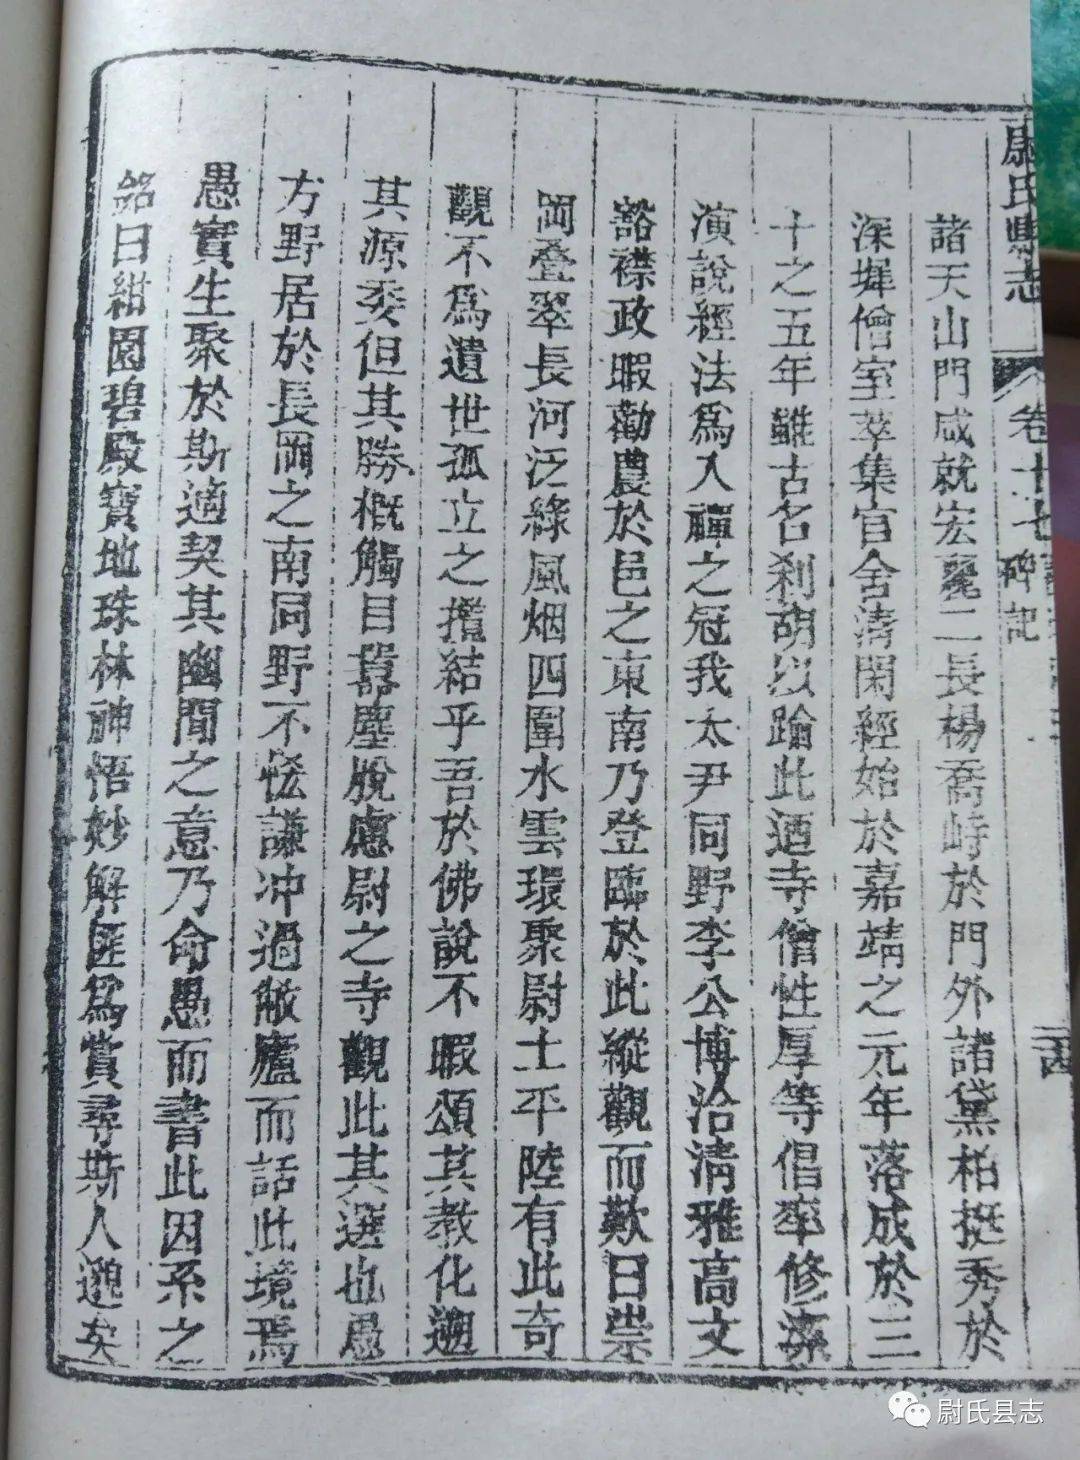 尉氏縣志 卷十七 碑記 二十四
諸天山門咸就宏麗二長楊喬峙於門外諸黛柏挺秀於
深墀僧室萃集官舍清閑經始於嘉靖之元年落成於三
十之五年雖古名刹胡以踰此迺寺僧性厚等倡率修
演說經法爲人禪之冠我太尹同野李公博洽清雅高文
豁襟政暇勸農於邑之東南乃登臨於此縱觀而歎曰崇
岡疊翠長河泛綠風烟四圍水雲環聚尉土平陸有此奇
觀不爲遺世孤立之攬結乎吾於佛說不暇頌其教化遡
其源委但其勝概觸目囂塵脫慮尉之寺觀此其選也愚
方野居於長岡之南同野不恡謙冲過敝廬而話此境焉
愚實生聚於斯適契其幽閒之意乃命愚而書此因系之
銘曰紺園碧殿寶地珠林神悟妙解匪爲賞尋斯人邈矣
尉氏县志